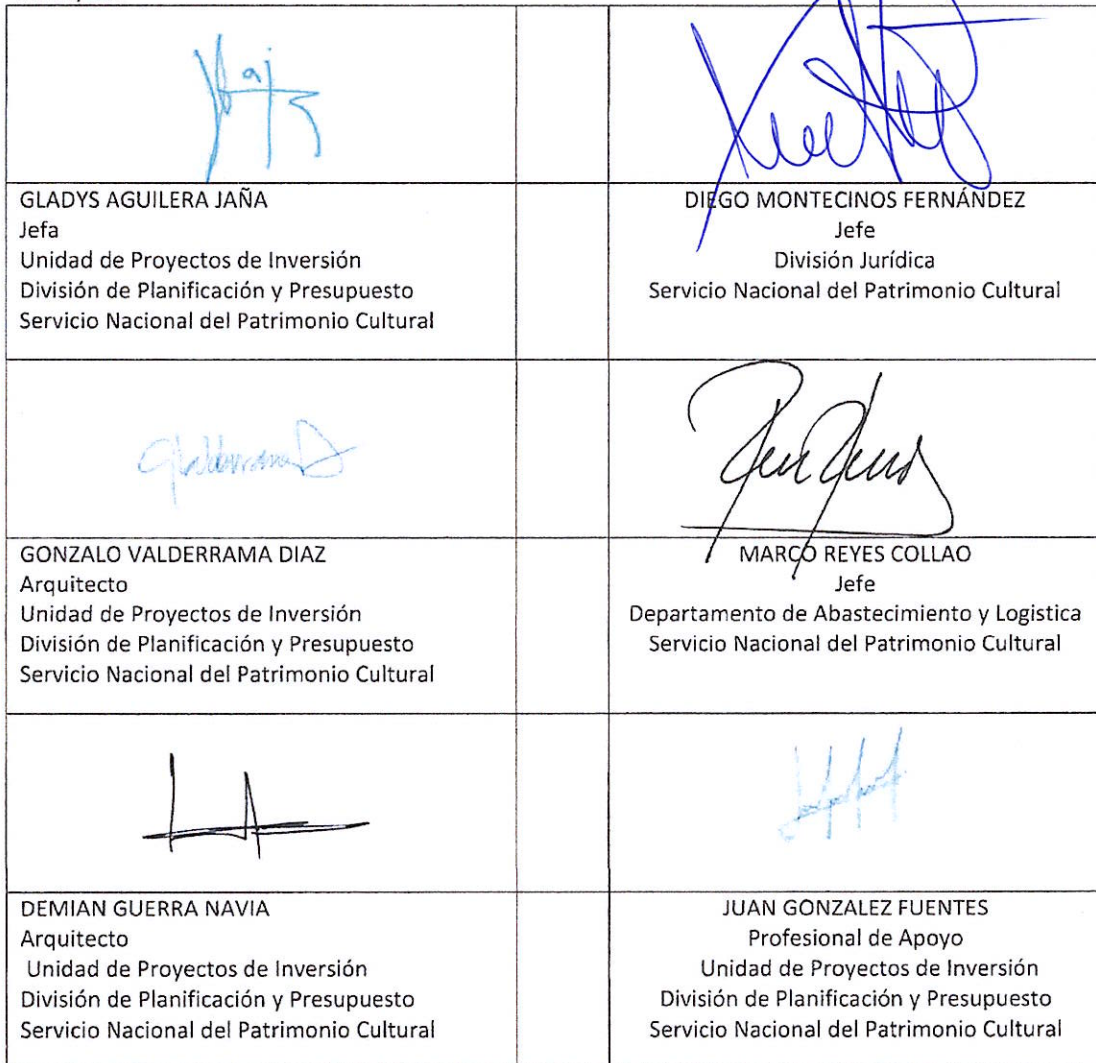 GLADYS AGUILERA JAÑA
Jefa
Unidad de Proyectos de Inversión
División de Planificación y Presupuesto
Servicio Nacional del Patrimonio Cultural
DIEGO MONTECINOS FERNÁNDEZ
Jefe
División Jurídica
Servicio Nacional del Patrimonio Cultural
GONZALO VALDERRAMA DIAZ
Arquitecto
Unidad de Proyectos de Inversión
División de Planificación y Presupuesto
Servicio Nacional del Patrimonio Cultural
MARCO REYES COLLAO
Jefe
Departamento de Abastecimiento y Logistica
Servicio Nacional del Patrimonio Cultural
DEMIAN GUERRA NAVIA
Arquitecto
Unidad de Proyectos de Inversión
División de Planificación y Presupuesto
Servicio Nacional del Patrimonio Cultural
JUAN GONZALEZ FUENTES
Profesional de Apoyo
Unidad de Proyectos de Inversión
División de Planificación y Presupuesto
Servicio Nacional del Patrimonio Cultural